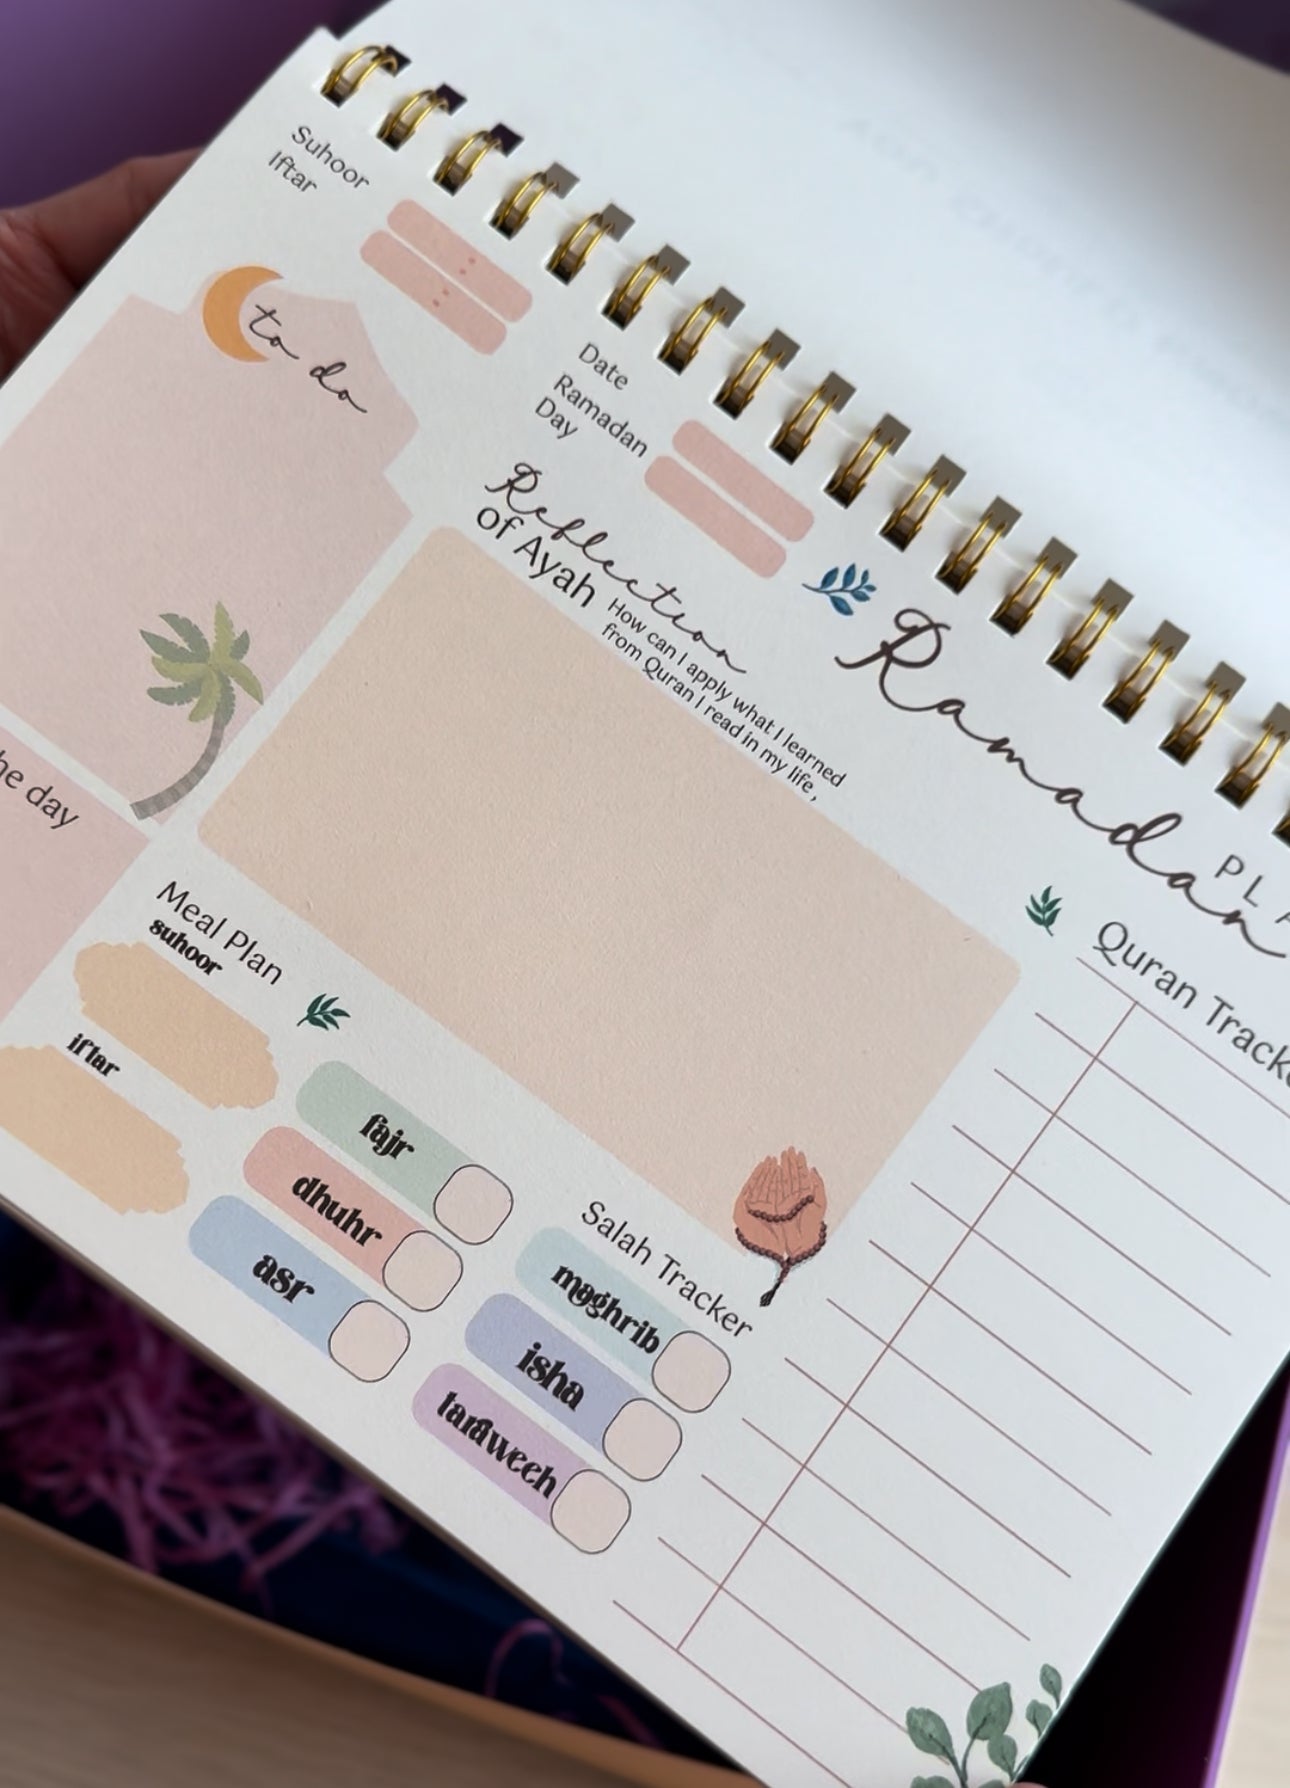 Suhoor
Iftar
to do
Date
Ramadan
Day
Reflection
of Ayah
How can I apply what I learned
from Quran I read in my life,
Ramadan
Quran
day
Meal Plan
suhoor
iftar
fajr
dhuhr
asr
Salah Tracker
maghrib
isha
taraweeh